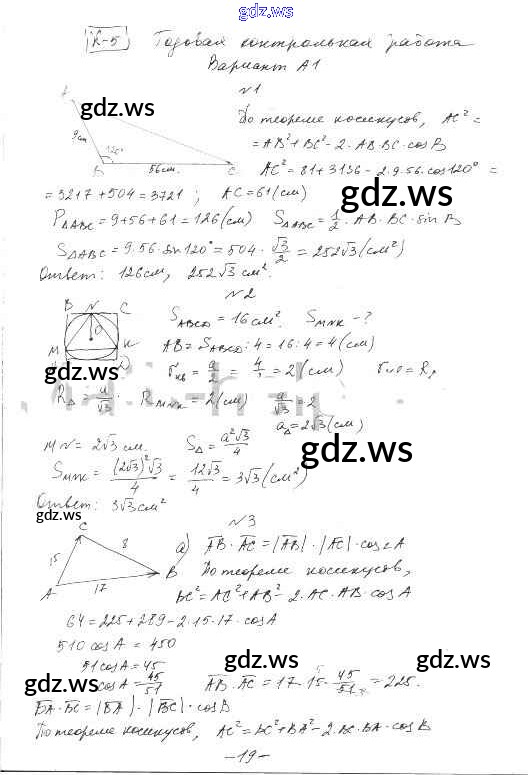 gdz.ws
К-5 Годовая контрольная работа
Вариант А1
№1
По теореме косинусов, AC² =
= AB² + BC² - 2·AB·BC·cos B
AC² = 81 + 3136 - 2·9·56·cos120° =
= 3217 + 504 = 3721; AC = 61 (см)
A 9см 120° B 56см. C
P△ABC = 9 + 56 + 61 = 126 (см) S△ABC = 1/2 · AB · BC · sin B
S△ABC = 9·56·sin120° = 504 · √3/2 = 252√3 (см²)
Ответ: 126 см, 252√3 см².
№2
B N C
O
M K
D
S ABCD = 16 см². S MNK - ?
AB = S ABCD : 4 = 16 : 4 = 4 (см)
r кв = a/2 = 4/2 = 2 (см)
R△ = a/√3. R MNK = 2 (см) a/√3 = 2
a△ = 2√3 (см)
MN = 2√3 см. S△ = a²√3/4
S MNK = (2√3)²√3/4 = 12√3/4 = 3√3 (см²)
Ответ: 3√3 см²
№3
C
15 8
A 17 B
а) AB · AC = |AB| · |AC| · cos∠A
По теореме косинусов,
BC² = AC² + AB² - 2·AC·AB·cos A
64 = 225 + 289 - 2·15·17·cos A
510 cos A = 450
51 cos A = 45
cos A = 45/51 AB · AC = 17·15·45/51 = 225.
BA · BC = |BA| · |BC| · cos B
По теореме косинусов, AC² = BC² + BA² - 2·BC·BA·cos B
-19-
gdz.ws
gdz.ws
gdz.ws
gdz.ws
gdz.ws
gdz.ws
gdz.ws
gdz.ws
gdz.ws
gdz.ws
gdz.ws